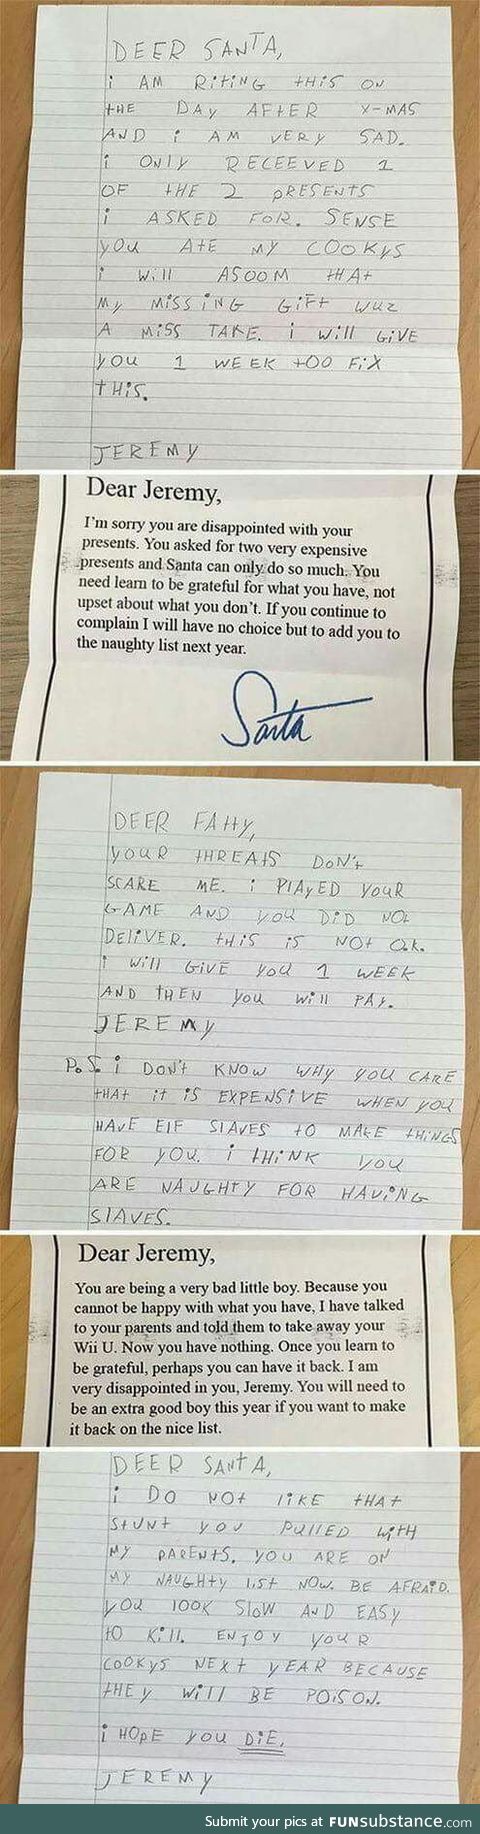 DEER SANTA,
i AM RITING tHiS ON
tHE DAy AFTER X-MAS
AND i AM VERy SAD.
i ONly RECEEVED 1
OF tHE 2 pRESENTS
i ASKED FOR. SENSE
yOu AtE My COOKyS
i will ASOOM tHAt
My MiSSiNG GiFt wuz
A MiSS TAKE. i will GiVE
yOU 1 WEEK tOO FiX
tHiS.
JEREMY
Dear Jeremy,
I'm sorry you are disappointed with your
presents. You asked for two very expensive
presents and Santa can only do so much. You
need learn to be grateful for what you have, not
upset about what you don't. If you continue to
complain I will have no choice but to add you to
the naughty list next year.
Santa
DEER FAtty,
yOUR tHREAtS DON't
SCARE ME. i PlAyED yOUR
GAME AND yOU DiD NOt
DEliVER. tHiS iS NOt O.K.
i will GiVE yOU 1 WEEK
AND tHEN yOU Will PAy.
JEREMY
P.S. i DON't KNOW WHY yOU CARE
tHAt it iS EXPENSiVE WHEN yOU
HAVE ElF SlAVES tO MAKE tHiNGS
FOR yOU. i tHiNK yOU
ARE NAUGHty FOR HAViNG
SlAVES.
Dear Jeremy,
You are being a very bad little boy. Because you
cannot be happy with what you have, I have talked
to your parents and told them to take away your
Wii U. Now you have nothing. Once you learn to
be grateful, perhaps you can have it back. I am
very disappointed in you, Jeremy. You will need to
be an extra good boy this year if you want to make
it back on the nice list.
DEER SANtA,
i DO NOt liKE tHAt
StUNt yOU PUllED witH
My PARENtS. yOU ARE ON
My NAUGHty liSt NOW. BE AFRAiD.
yOU lOOK SlOW AND EASy
tO Kill. ENJOy yOUR
COOKyS NEXt yEAR BECAUSE
tHEy Will BE POiSON.
i HOpE yOU DiE.
JEREMY
Submit your pics at FUNsubstance.com